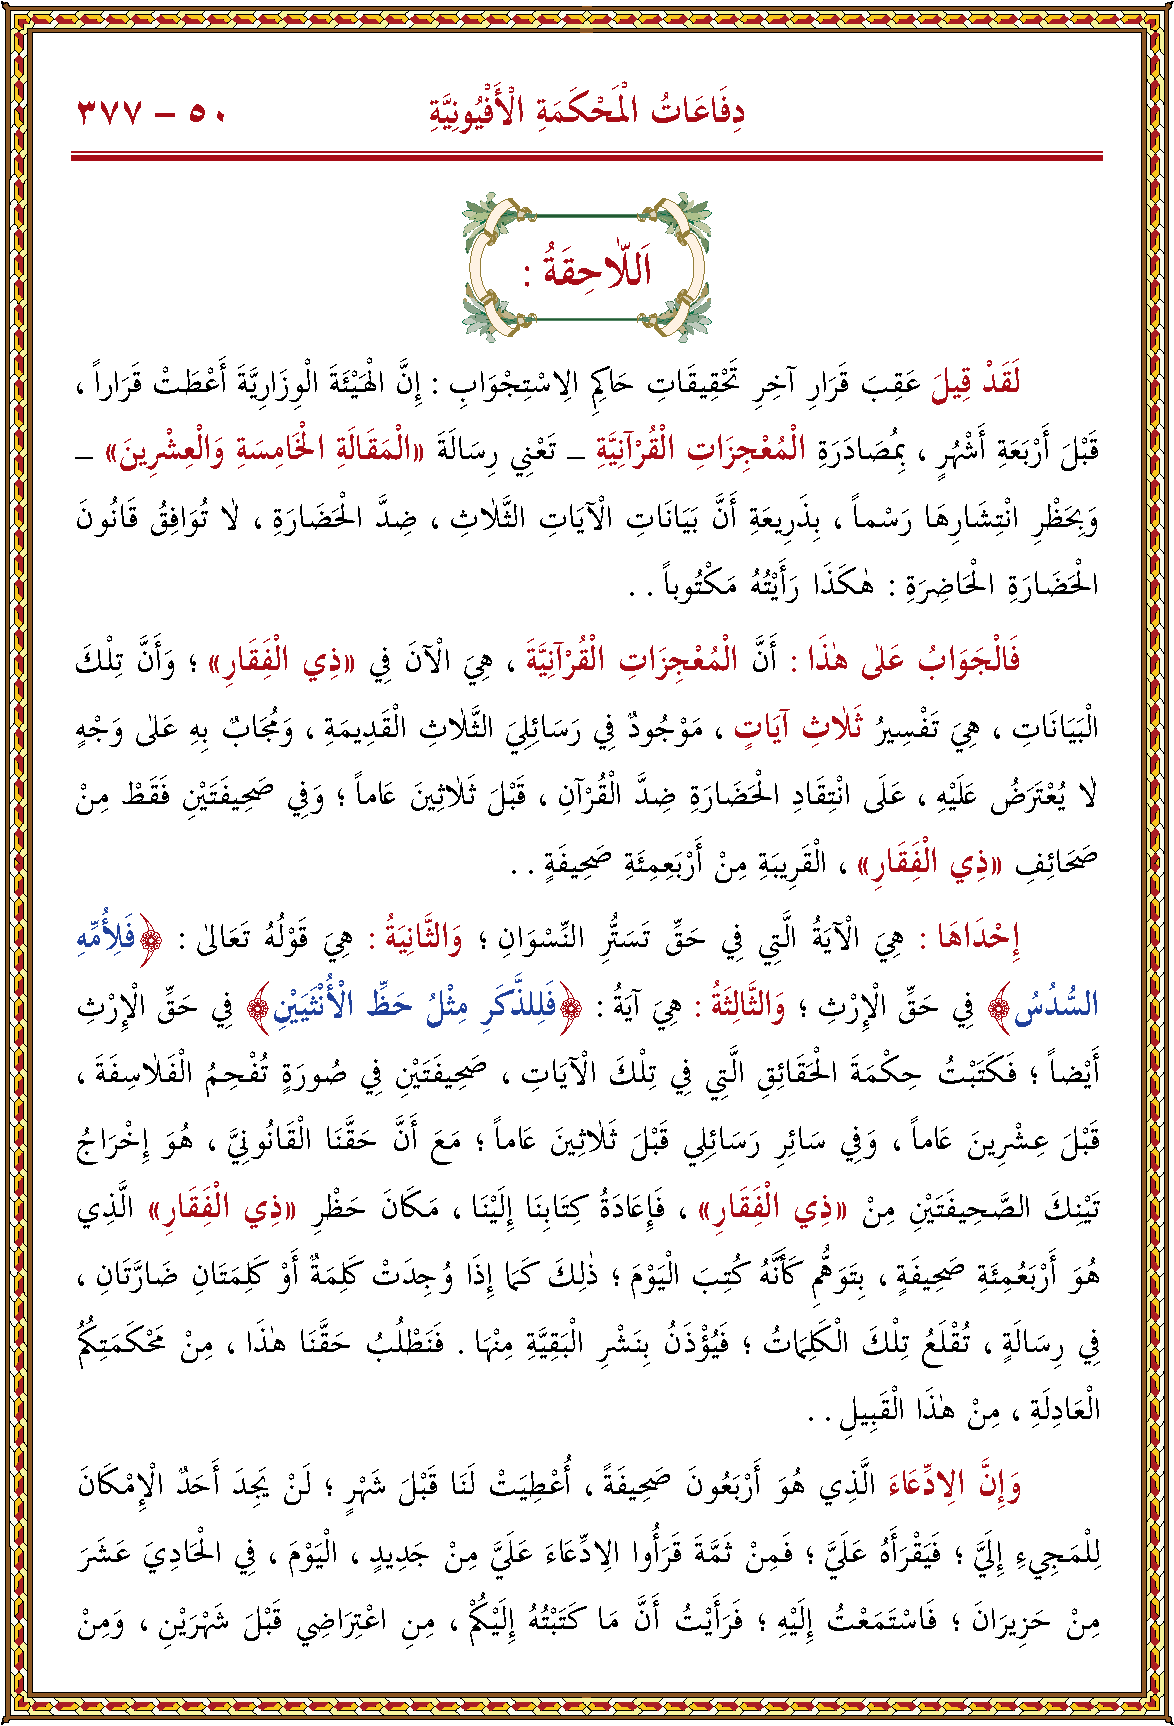 دِفَاعَاتُ الْمَحْكَمَةِ الْأَفْيُونِيَّةِ ٥٠ – ٣٧٧
اَللّاٰحِقَةُ :
لَقَدْ قِيلَ عَقِبَ قَرَارِ آخِرِ تَحْقِيقَاتِ حَاكِمِ الِاسْتِجْوَابِ : إِنَّ الْهَيْئَةَ الْوِزَارِيَّةَ أَعْطَتْ قَرَاراً ،
قَبْلَ أَرْبَعَةِ أَشْهُرٍ ، بِمُصَادَرَةِ الْمُعْجِزَاتِ الْقُرْآنِيَّةِ – تَعْنِي رِسَالَةَ «الْمَقَالَةِ الْخَامِسَةِ وَالْعِشْرِينَ» –
وَبِحَظْرِ انْتِشَارِهَا رَسْماً ، بِذَرِيعَةِ أَنَّ بَيَانَاتِ الْآيَاتِ الثَّلٰاثِ ، ضِدَّ الْحَضَارَةِ ، لٰا تُوَافِقُ قَانُونَ
الْحَضَارَةِ الْحَاضِرَةِ : هٰكَذَا رَأَيْتُهُ مَكْتُوباً . .
فَالْجَوَابُ عَلٰى هٰذَا : أَنَّ الْمُعْجِزَاتِ الْقُرْآنِيَّةَ ، هِيَ الْآنَ فِي «ذِي الْفَقَارِ» ؛ وَأَنَّ تِلْكَ
الْبَيَانَاتِ ، هِيَ تَفْسِيرُ ثَلٰاثِ آيَاتٍ ، مَوْجُودٌ فِي رَسَائِلِيَ الثَّلٰاثِ الْقَدِيمَةِ ، وَمُجَابٌ بِهِ عَلٰى وَجْهٍ
لٰا يُعْتَرَضُ عَلَيْهِ ، عَلَى انْتِقَادِ الْحَضَارَةِ ضِدَّ الْقُرْآنِ ، قَبْلَ ثَلٰاثِينَ عَاماً ؛ وَفِي صَحِيفَتَيْنِ فَقَطْ مِنْ
صَحَائِفِ «ذِي الْفَقَارِ» ، الْقَرِيبَةِ مِنْ أَرْبَعِمِئَةِ صَحِيفَةٍ . .
إِحْدَاهَا : هِيَ الْآيَةُ الَّتِي فِي حَقِّ تَسَتُّرِ النِّسْوَانِ ؛ وَالثَّانِيَةُ : هِيَ قَوْلُهُ تَعَالٰى : ﴿فَلِأُمِّهِ
السُّدُسُ﴾ فِي حَقِّ الْإِرْثِ ؛ وَالثَّالِثَةُ : هِيَ آيَةُ : ﴿فَلِلذَّكَرِ مِثْلُ حَظِّ الْأُنْثَيَيْنِ﴾ فِي حَقِّ الْإِرْثِ
أَيْضاً ؛ فَكَتَبْتُ حِكْمَةَ الْحَقَائِقِ الَّتِي فِي تِلْكَ الْآيَاتِ ، صَحِيفَتَيْنِ فِي صُورَةٍ تُفْحِمُ الْفَلٰاسِفَةَ ،
قَبْلَ عِشْرِينَ عَاماً ، وَفِي سَائِرِ رَسَائِلِي قَبْلَ ثَلٰاثِينَ عَاماً ؛ مَعَ أَنَّ حَقَّنَا الْقَانُونِيَّ ، هُوَ إِخْرَاجُ
تَيْنِكَ الصَّحِيفَتَيْنِ مِنْ «ذِي الْفَقَارِ» ، فَإِعَادَةُ كِتَابِنَا إِلَيْنَا ، مَكَانَ حَظْرِ «ذِي الْفَقَارِ» الَّذِي
هُوَ أَرْبَعُمِئَةِ صَحِيفَةٍ ، بِتَوَهُّمِ كَأَنَّهُ كُتِبَ الْيَوْمَ ؛ ذٰلِكَ كَمَا إِذَا وُجِدَتْ كَلِمَةٌ أَوْ كَلِمَتَانِ ضَارَّتَانِ ،
فِي رِسَالَةٍ ، تُقْلَعُ تِلْكَ الْكَلِمَاتُ ؛ فَيُؤْذَنُ بِنَشْرِ الْبَقِيَّةِ مِنْهَا . فَنَطْلُبُ حَقَّنَا هٰذَا ، مِنْ مَحْكَمَتِكُمُ
الْعَادِلَةِ ، مِنْ هٰذَا الْقَبِيلِ . .
وَإِنَّ الِادِّعَاءَ الَّذِي هُوَ أَرْبَعُونَ صَحِيفَةً ، أُعْطِيَتْ لَنَا قَبْلَ شَهْرٍ ؛ لَنْ يَجِدَ أَحَدٌ الْإِمْكَانَ
لِلْمَجِيءِ إِلَيَّ ؛ فَيَقْرَأَهُ عَلَيَّ ؛ فَمِنْ ثَمَّةَ قَرَأُوا الِادِّعَاءَ عَلَيَّ مِنْ جَدِيدٍ ، الْيَوْمَ ، فِي الْحَادِيَ عَشَرَ
مِنْ حَزِيرَانَ ؛ فَاسْتَمَعْتُ إِلَيْهِ ؛ فَرَأَيْتُ أَنَّ مَا كَتَبْتُهُ إِلَيْكُمْ ، مِنِ اعْتِرَاضِي قَبْلَ شَهْرَيْنِ ، وَمِنْ